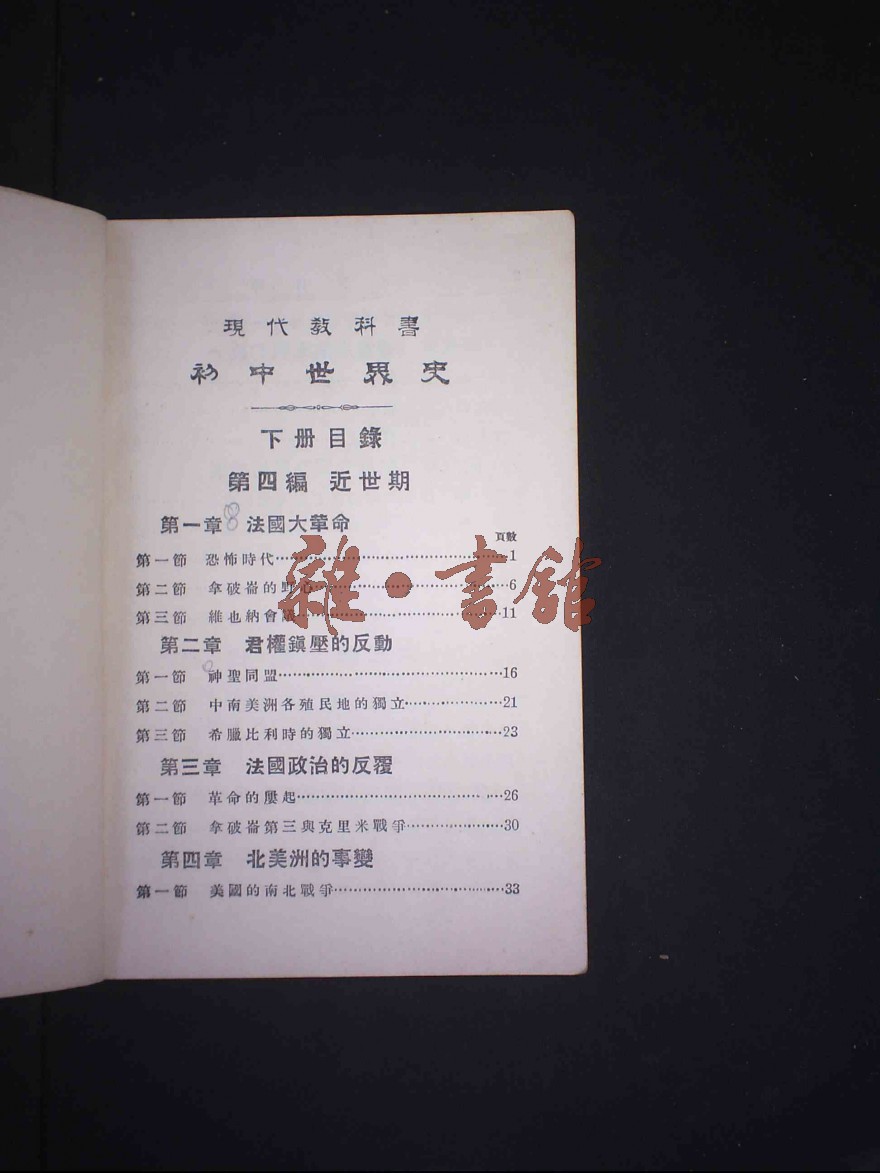 現代教科書
初中世界史
下册目錄
第四編 近世期
第一章 法國大革命
頁數
第一節 恐怖時代……1
第二節 拿破崙的野心……6
第三節 維也納會議……11
第二章 君權鎭壓的反動
第一節 神聖同盟……16
第二節 中南美洲各殖民地的獨立……21
第三節 希臘比利時的獨立……23
第三章 法國政治的反覆
第一節 革命的屢起……26
第二節 拿破崙第三與克里米戰爭……30
第四章 北美洲的事變
第一節 美國的南北戰爭……33
雜·書館